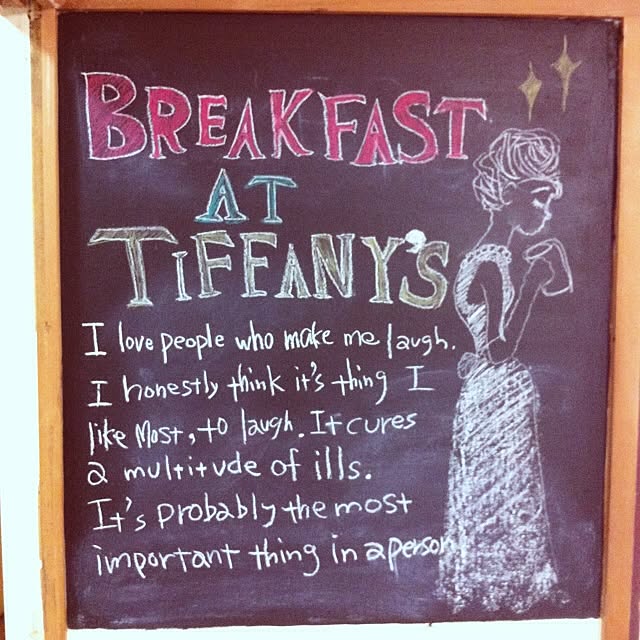 BREAKFAST
AT
TIFFANY'S
I love people who make me laugh.
I honestly think it's thing I
like most, to laugh. It cures
a multitude of ills.
It's probably the most
important thing in a person